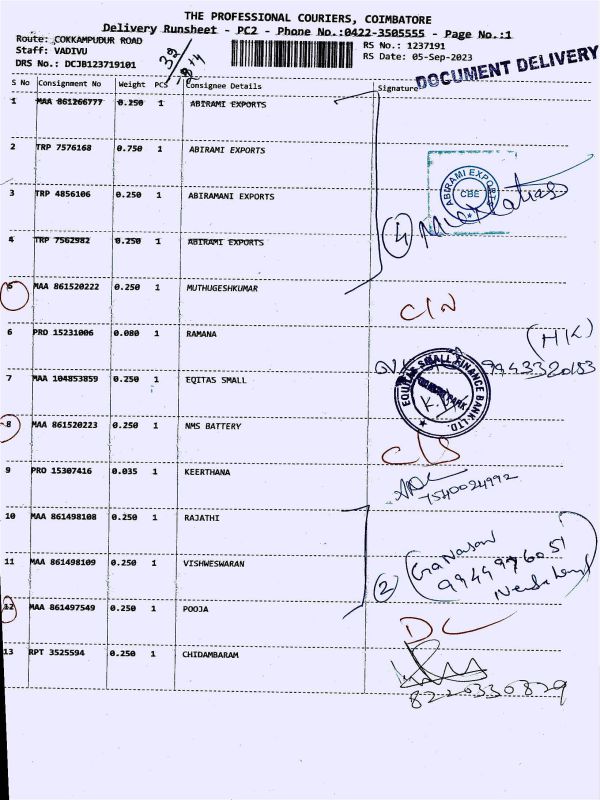 THE PROFESSIONAL COURIERS, COIMBATORE
Delivery Runsheet - PC2 - Phone No.:0422-3505555 - Page No.:1
Route: COKKAMPUDUR ROAD
RS No.: 1237191
Staff: VADIVU
RS Date: 05-Sep-2023
DRS No.: DCJB123719101
DOCUMENT DELIVERY
S No Consignment No Weight PCS Consignee Details Signature
1 MAA 861266777 0.250 1 ABIRAMI EXPORTS
2 TRP 7576168 0.750 1 ABIRAMI EXPORTS
ABIRAMI EXPORTS
CBE
3 TRP 4856106 0.250 1 ABIRAMANI EXPORTS
4
4 TRP 7562982 0.250 1 ABIRAMI EXPORTS
5 MAA 861520222 0.250 1 MUTHUGESHKUMAR
C/N
6 PRO 15231006 0.080 1 RAMANA
(HK)
9943320183
7 MAA 104853859 0.250 1 EQITAS SMALL
EQUITAS SMALL FINANCE BANK LTD.
8 MAA 861520223 0.250 1 NMS BATTERY
C/S
9 PRO 15307416 0.035 1 KEERTHANA
7540024992
10 MAA 861498108 0.250 1 RAJATHI
11 MAA 861498109 0.250 1 VISHWESWARAN
2
9944976051
12 MAA 861497549 0.250 1 POOJA
DC
13 RPT 3525594 0.250 1 CHIDAMBARAM
8220330829